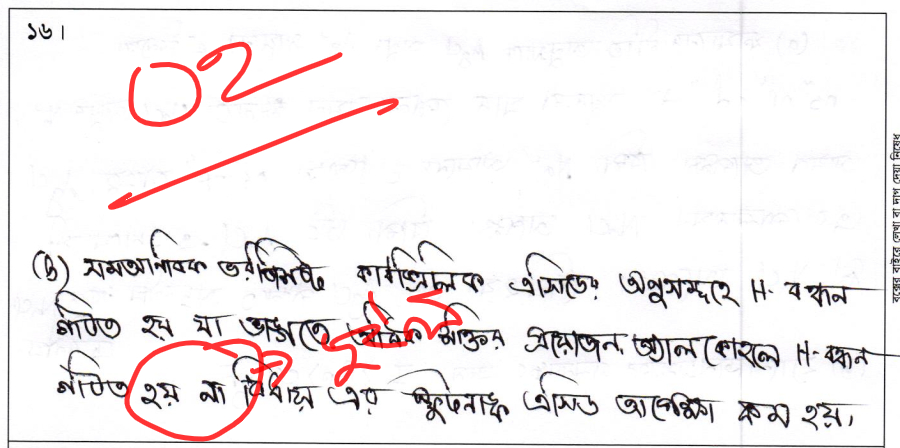 ১৬।
02
(b) সমআণবিক ভরবিশিষ্ট কার্বক্সিলিক এসিডের অণুসমূহে H- বন্ধন
গঠিত হয় যা ভাঙতে অধিক শক্তির প্রয়োজন, অ্যালকোহলে H- বন্ধন
গঠিত হয় না বিধায় এর স্ফুটনাঙ্ক এসিড অপেক্ষা কম হয়।
বক্সের বাইরে লেখা বা দাগ দেয়া নিষেধ